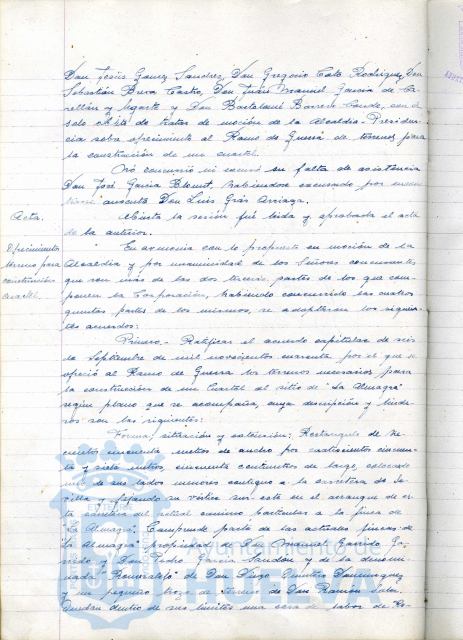 Don Jesús Gómez Sandres, Don Gregorio Cots Rodriguez, Don
Sebastián Bara Castro, Don Juan Manuel Garcia de Ca-
rellán y Ugarte y Don Bartolomé Barrero Conde, con el
solo objeto de tratar de moción de la Alcaldia-Presiden-
cia sobre ofrecimiento al Ramo de Guerra de terrenos para
la construcción de un cuartel.
No concurrió ni excusó su falta de asistencia
Don José Garcia habiendose excusado por
ausente Don Luis Grás Arriaga.
Acta.
Abierta la sesión fué leida y aprobada el acta
de la anterior.
Ofrecimiento
terreno para
construcción
cuartel.
En armonia con lo propuesto en moción de la
Alcaldia y por unanimidad de los Señores concurrentes
que son más de las dos terceras partes de los que com-
ponen la Corporación, habiendo concurrido las cuatro
quintas partes de los mismos, se adoptaron los siguien-
tes acuerdos:
Primero.- Ratificar el acuerdo capitular de seis
de Septiembre de mil novecientos cuarenta por el que se
ofreció al Ramo de Guerra los terrenos necesarios para
la construcción de un Cuartel al sitio de "La Almagra"
según plano que se acompaña, cuya descripción y linde-
ros son las siguientes:
Forma, situación y extensión; Rectangulo de
cientos cincuenta metros de ancho por cuatrocientos cincuen-
ta y siete metros, cincuenta centimetros de largo, colocado
uno de sus lados menores contiguo a la carretera de Se-
villa y fijando su vértice sur-este en el arranque de es-
ta carretera del actual camino particular a la finca de
"La Almagra". Comprende parte de las actuales fincas de
"La Almagra" propiedad de Don Manuel Garrido
y Don Pedro Garcia y de la denomi-
nada de Don Diego Dominguez
y un pequeño trozo de terreno de Don Ramón
Quedan dentro de sus limites una casa de labor de
Ayuntamiento de
HUELVA